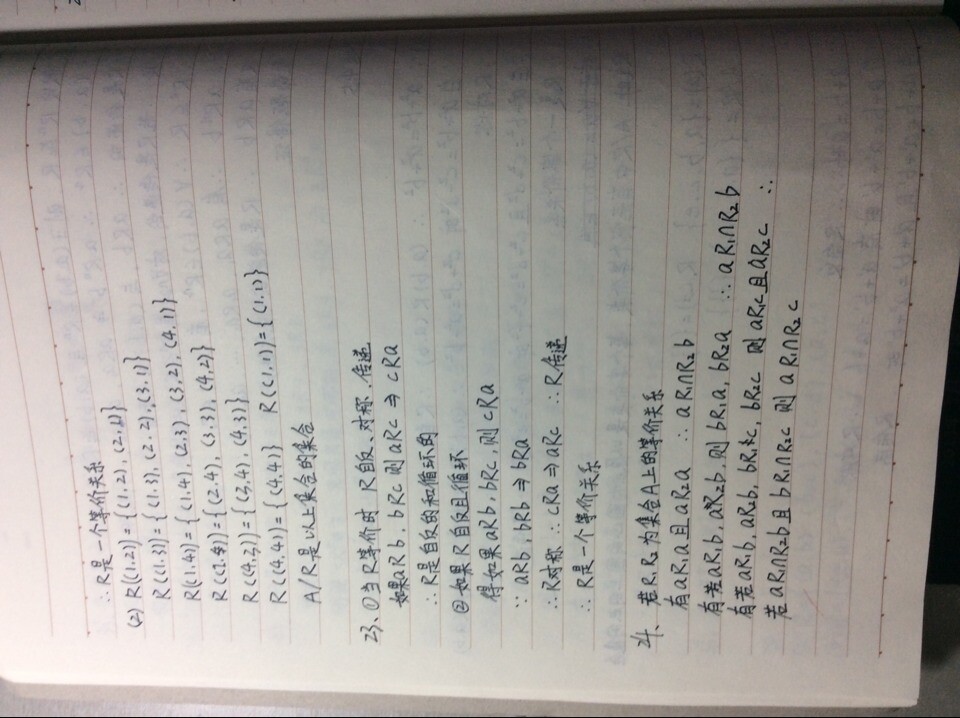 ∴R是一个等价关系
(2) R((1,2)) = {(1,2), (2,1)}
R((1,3)) = {(1,3), (2,2), (3,1)}
R((1,4)) = {(1,4), (2,3), (3,2), (4,1)}
R((2,4)) = {(2,4), (3,3), (4,2)}
R((4,3)) = {(3,4), (4,3)}
R((4,4)) = {(4,4)} R((1,1)) = {(1,1)}
A/R是以上集合的集合
23、①当R等价时 R自反、对称、传递
如果aRb, bRc 则aRc ⇒ cRa
∴R是自反的和循环的
②如果R自反且循环
得如果aRb, bRc, 则cRa
∵ aRb, bRb ⇒ bRa
∴R对称 ∴cRa ⇒ aRc ∴R传递
∴ R是一个等价关系
24、若R₁R₂为集合A上的等价关系
有aR₁a且aR₂a ∴ aR₁∩R₂b
有若aR₁b, aR₂b, 则 bR₁a, bR₂a ∴ aR₁∩R₂b
有若aR₁b, aR₂b, bR₁c, bR₂c 则 aR₁c且aR₂c ∴
若aR₁∩R₂b且 bR₁∩R₂c 则 aR₁∩R₂c